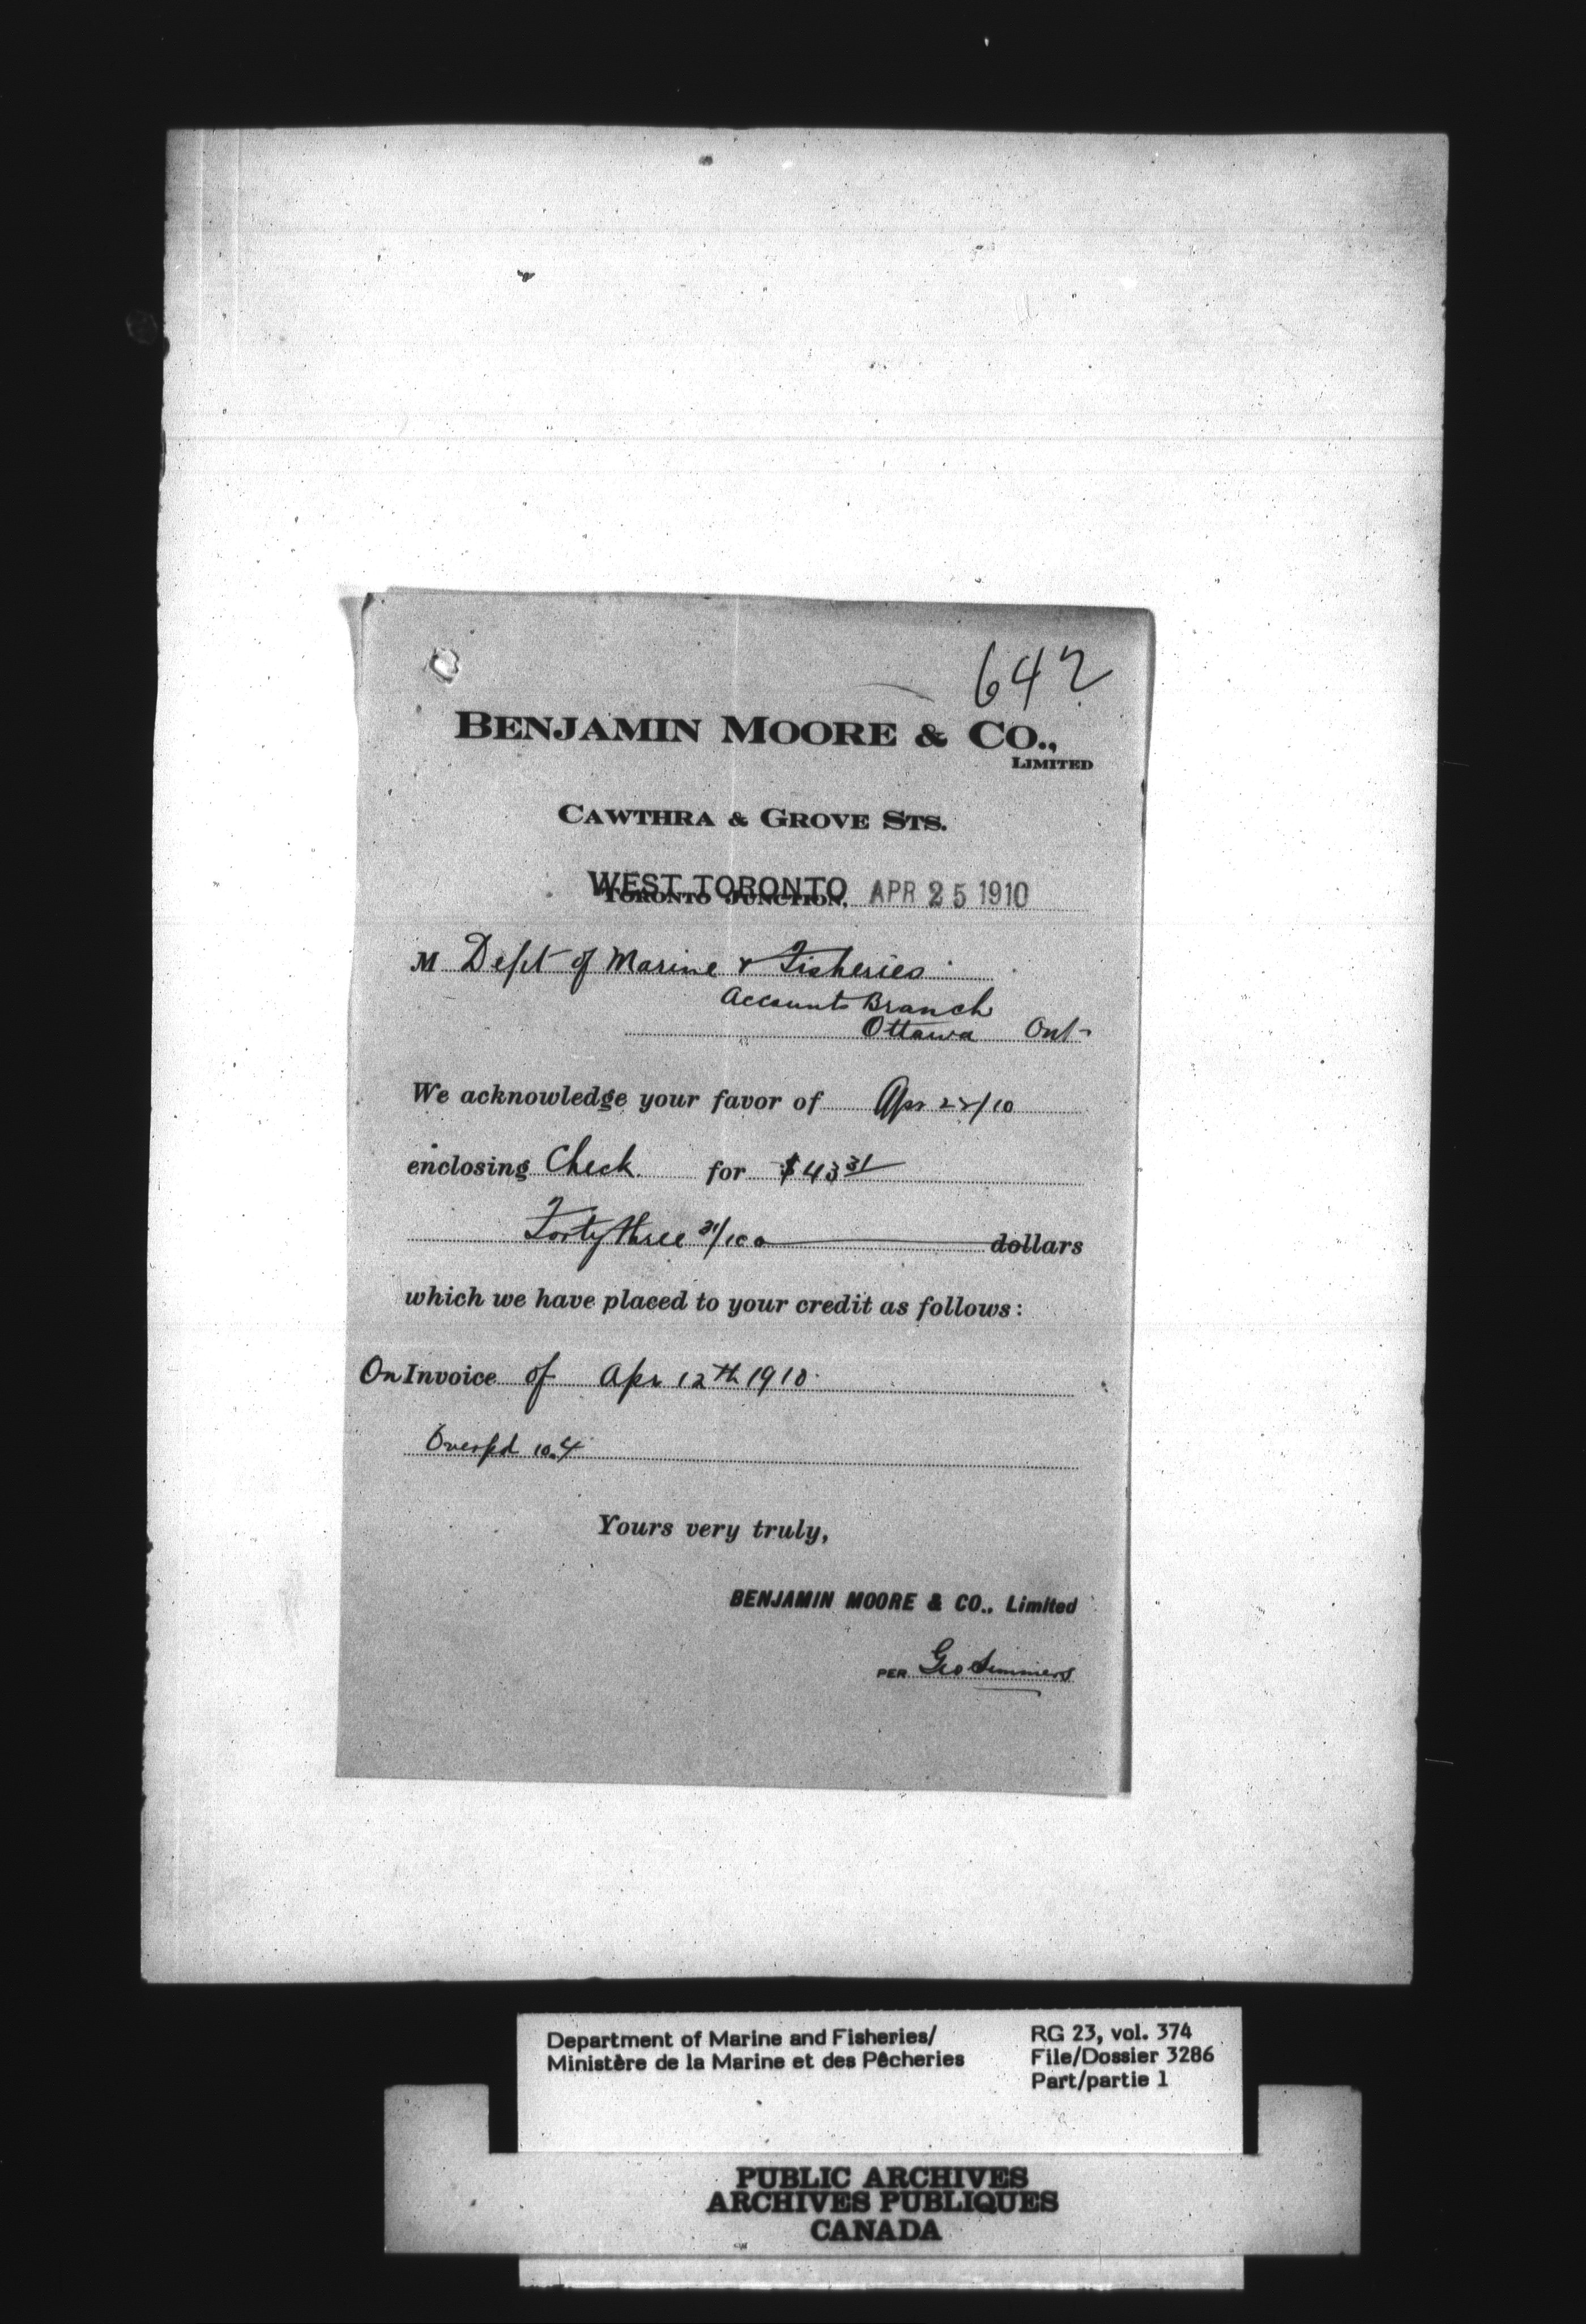 642
BENJAMIN MOORE & CO.,
LIMITED
CAWTHRA & GROVE STS.
WEST TORONTO
TORONTO JUNCTION, APR 25 1910
M Dept of Marine & Fisheries
Account Branch
Ottawa Ont
We acknowledge your favor of Apr 22/10
enclosing Check for $43 31
Forty three 31/100 dollars
which we have placed to your credit as follows:
On Invoice of Apr 12th 1910
Overpd 10.4
Yours very truly,
BENJAMIN MOORE & CO., Limited
PER Geo Simmers
Department of Marine and Fisheries/
Ministère de la Marine et des Pêcheries
RG 23, vol. 374
File/Dossier 3286
Part/partie 1
PUBLIC ARCHIVES
ARCHIVES PUBLIQUES
CANADA